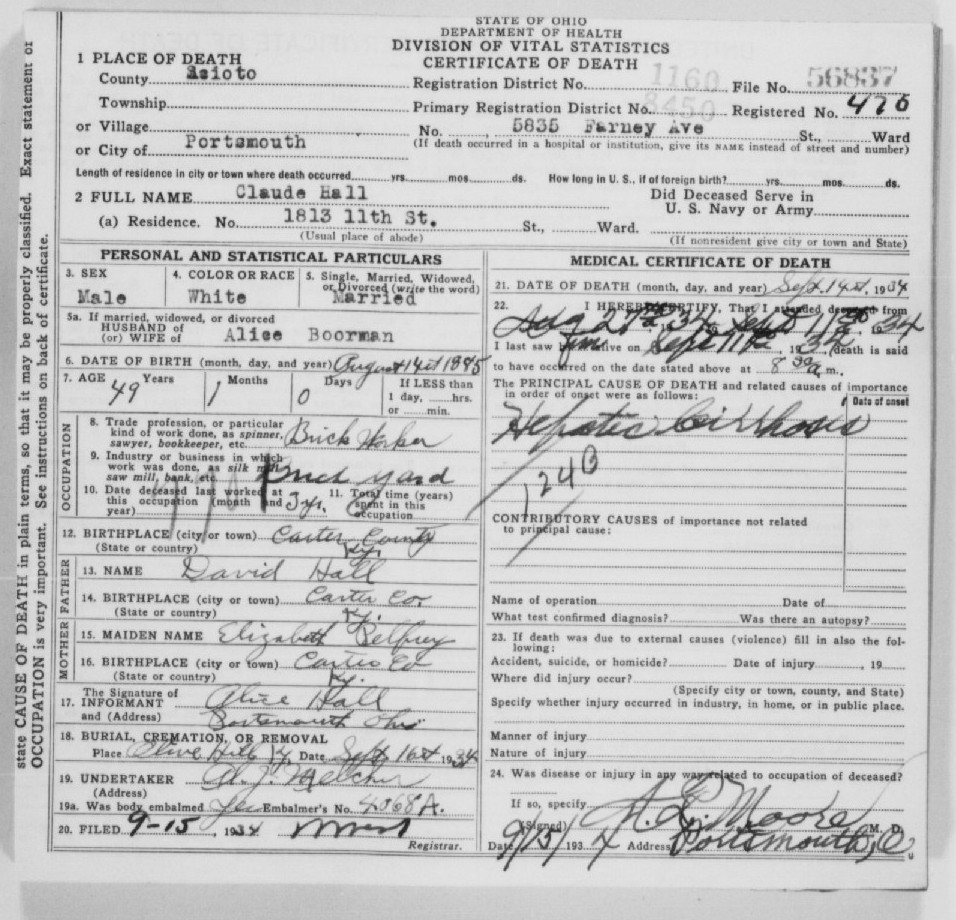 STATE OF OHIO
DEPARTMENT OF HEALTH
DIVISION OF VITAL STATISTICS
CERTIFICATE OF DEATH
1 PLACE OF DEATH
County Asioto
Registration District No. 1160 File No. 56837
Township
Primary Registration District No. 8450 Registered No. 476
or Village
No. , 5835 Farney Ave St., Ward
or City of Portsmouth
(If death occurred in a hospital or institution, give its NAME instead of street and number)
Length of residence in city or town where death occurred yrs. mos. ds. How long in U. S., if of foreign birth? yrs. mos. ds.
2 FULL NAME Claude Hall
Did Deceased Serve in
U. S. Navy or Army
(a) Residence. No. 1813 11th St. St., Ward.
(Usual place of abode) (If nonresident give city or town and State)
state CAUSE OF DEATH in plain terms, so that it may be properly classified. Exact statement of
OCCUPATION is very important. See instructions on back of certificate.
PERSONAL AND STATISTICAL PARTICULARS
3. SEX
Male
4. COLOR OR RACE
White
5. Single, Married, Widowed,
or Divorced (write the word)
Married
5a. If married, widowed, or divorced
HUSBAND of
(or) WIFE of Alice Boorman
6. DATE OF BIRTH (month, day, and year) August 14st 1885
7. AGE 49 Years 1 Months 0 Days
If LESS than
1 day, hrs.
or min.
OCCUPATION
8. Trade profession, or particular
kind of work done, as spinner,
sawyer, bookkeeper, etc. Brick
9. Industry or business in which
work was done, as silk mill,
saw mill, bank, etc. Brick yard
10. Date deceased last worked at
this occupation (month and
year) 3 yrs.
11. Total time (years)
spent in this
occupation
12. BIRTHPLACE (city or town) Carter County
(State or country) Ky.
FATHER
13. NAME David Hall
14. BIRTHPLACE (city or town) Carter Co
(State or country) Ky.
MOTHER
15. MAIDEN NAME Elizabeth Pelfrey
16. BIRTHPLACE (city or town) Carter Co
(State or country) Ky.
17. The Signature of
INFORMANT Alice Hall
and (Address) Portsmouth Ohio
18. BURIAL, CREMATION, OR REMOVAL
Place Olive Hill Ky. Date Sept 16st 1934
19. UNDERTAKER A. J. Melcher
(Address)
19a. Was body embalmed Yes Embalmer's No. 4068 A.
20. FILED 9-15, 1934
Registrar.
MEDICAL CERTIFICATE OF DEATH
21. DATE OF DEATH (month, day, and year) Sept 14st, 1934
22. I HEREBY CERTIFY, That I attended deceased from
1934
I last saw h alive on Sept 11 , 1934, death is said
to have occurred on the date stated above at 8 30 a.m.
The PRINCIPAL CAUSE OF DEATH and related causes of importance
in order of onset were as follows:
Date of onset
Hepatic Cirrhosis
124B
CONTRIBUTORY CAUSES of importance not related
to principal cause:
Name of operation Date of
What test confirmed diagnosis? Was there an autopsy?
23. If death was due to external causes (violence) fill in also the fol-
lowing:
Accident, suicide, or homicide? Date of injury , 19
Where did injury occur?
(Specify city or town, county, and State)
Specify whether injury occurred in industry, in home, or in public place.
Manner of injury
Nature of injury
24. Was disease or injury in any way related to occupation of deceased?
If so, specify
(Signed) Moore M. D.
Date 9/15/1934 Address Portsmouth, O